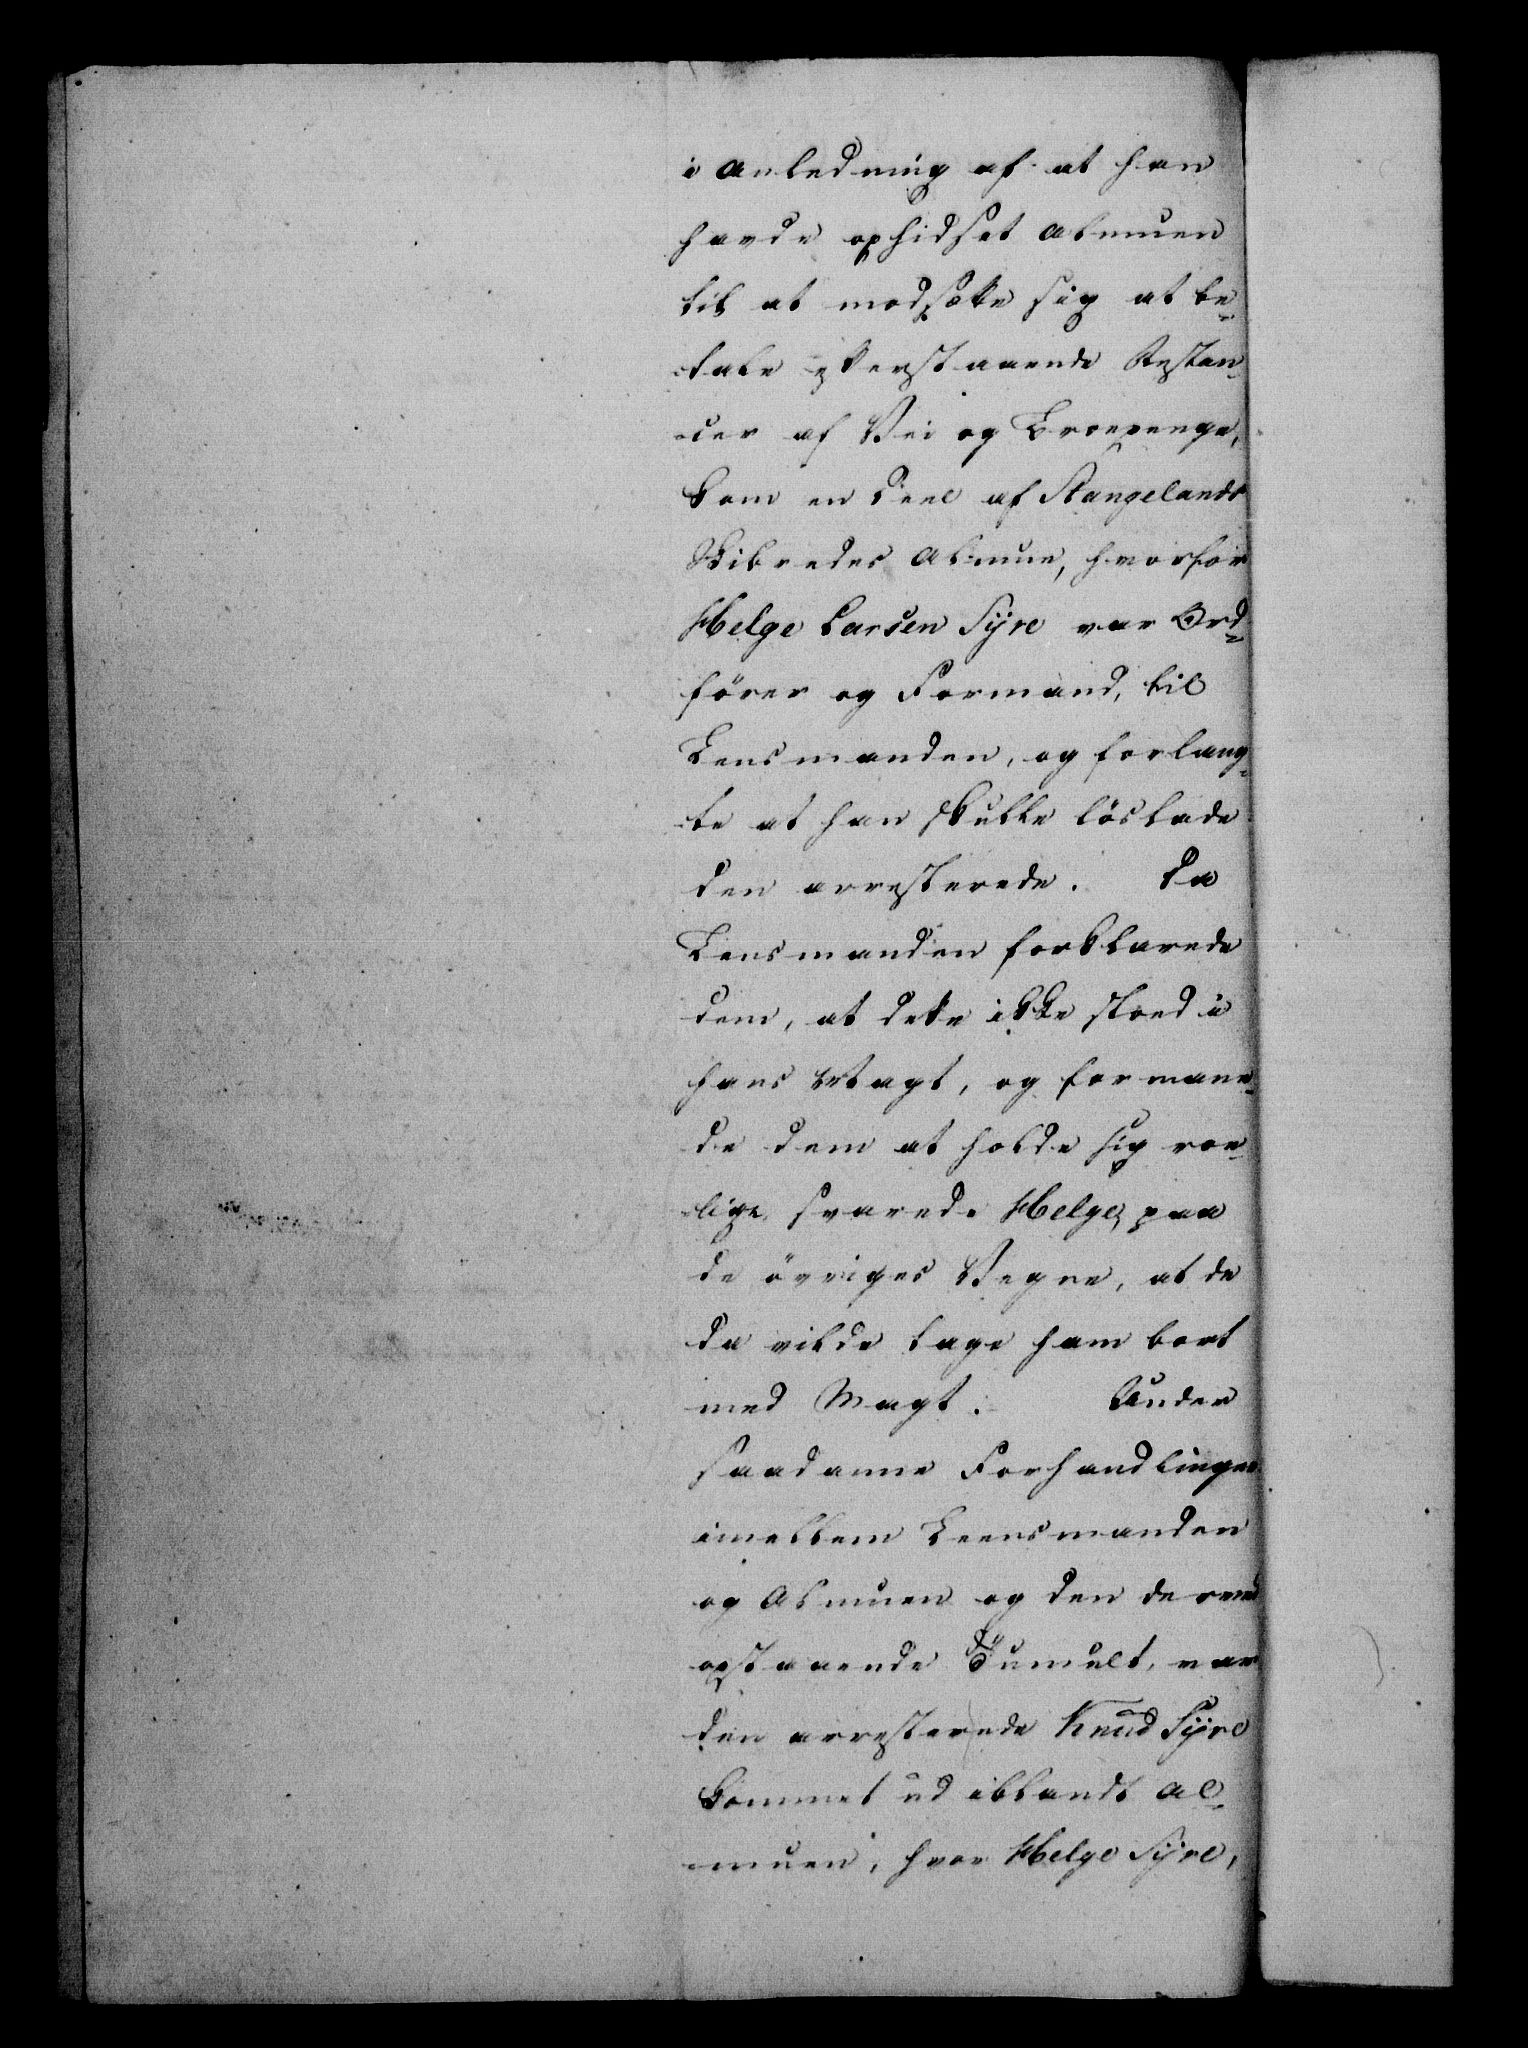 i Anledning af at han
havde ophidset Almuen
til at modsætte sig at be-
tale efterstaaende Restan-
cer af Vei og Broepenge,
kom en Deel af Stangelands
Skibredes Almue, hvorfor
Helge Larsen Syre var Ord-
förer og Formand, til
Lensmanden, og forlang-
te at han skulle löslade
den arresterede. Da
Lensmanden forklarede
dem, at dette ikke stoed i
hans Magt, og formane-
de dem at holde sig roe-
lige, svarede Helge, paa
de övriges Vegne, at de
da vilde tage ham bort
med Magt. Under
saadanne Forhandlinger
imellem Leensmanden
og Almuen og den derved
opstaaende Tumult, var
den arresterede Knud Syre
kommet ud iblandt Al-
muen, hvor Helge Syre,